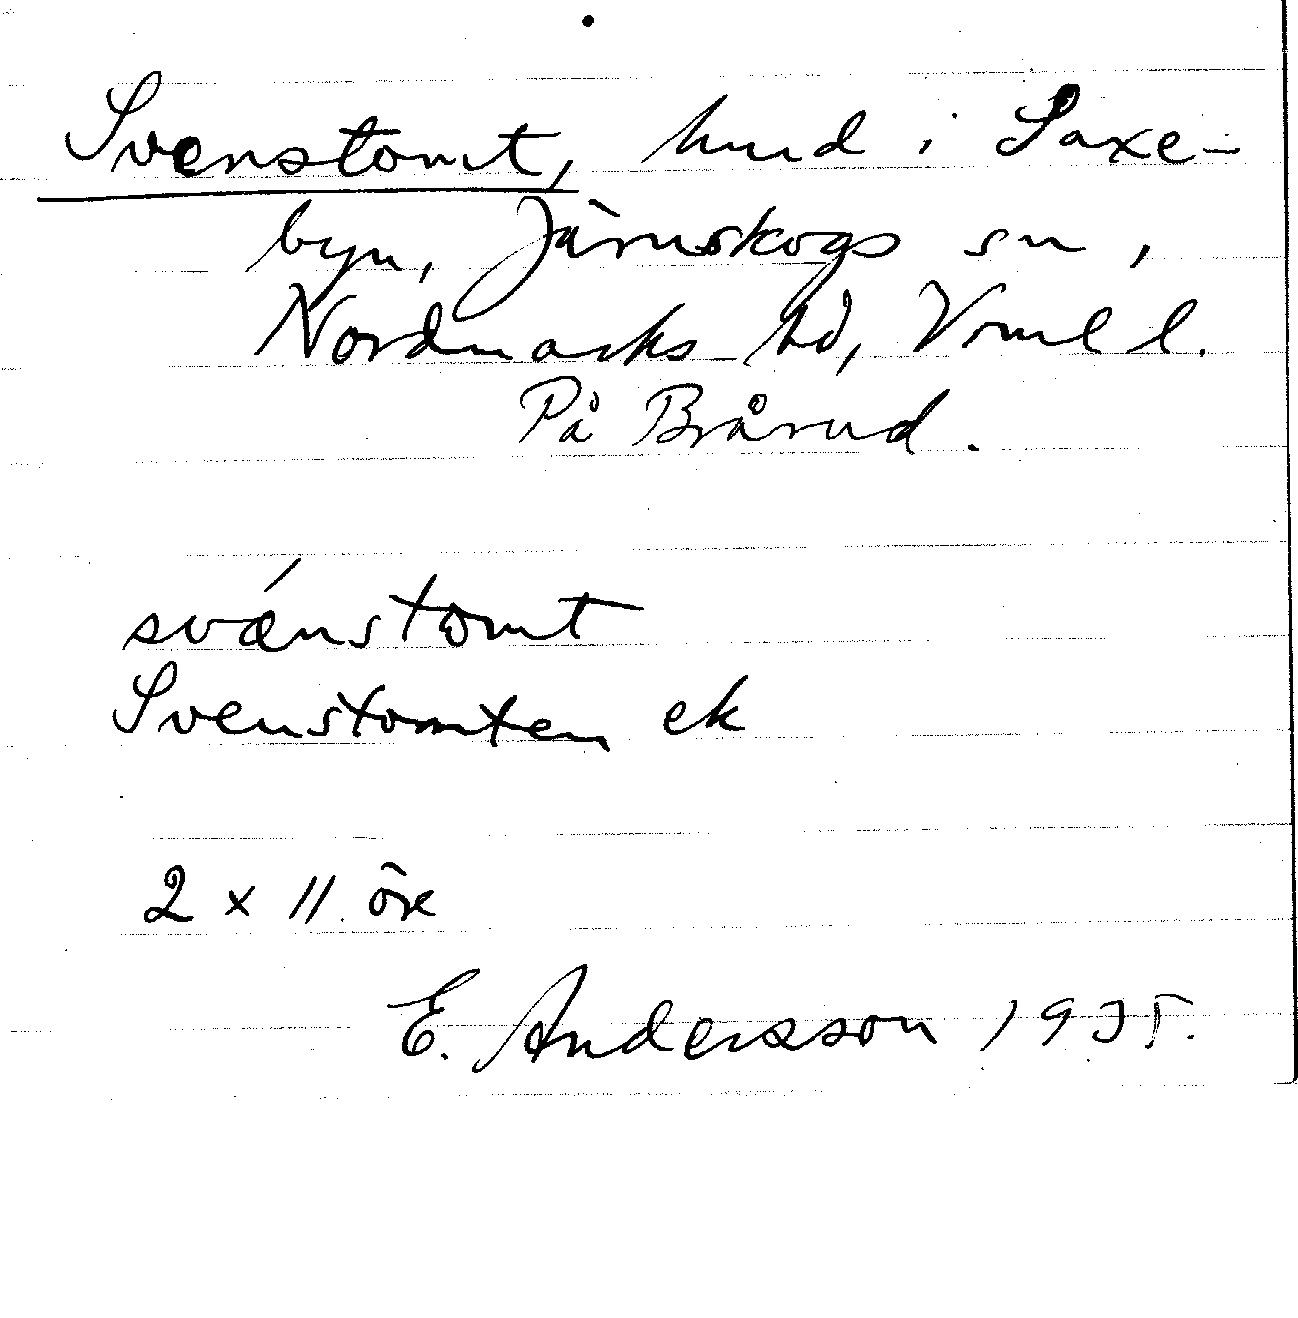 Svenstomt, hmd i Saxe-
byn, Järnskogs sn,
Nordmarks hd, Vrml l.
På Brårud.
svánstomt
Svenstomten ek
2 x 11. öre
E. Andersson 1935.